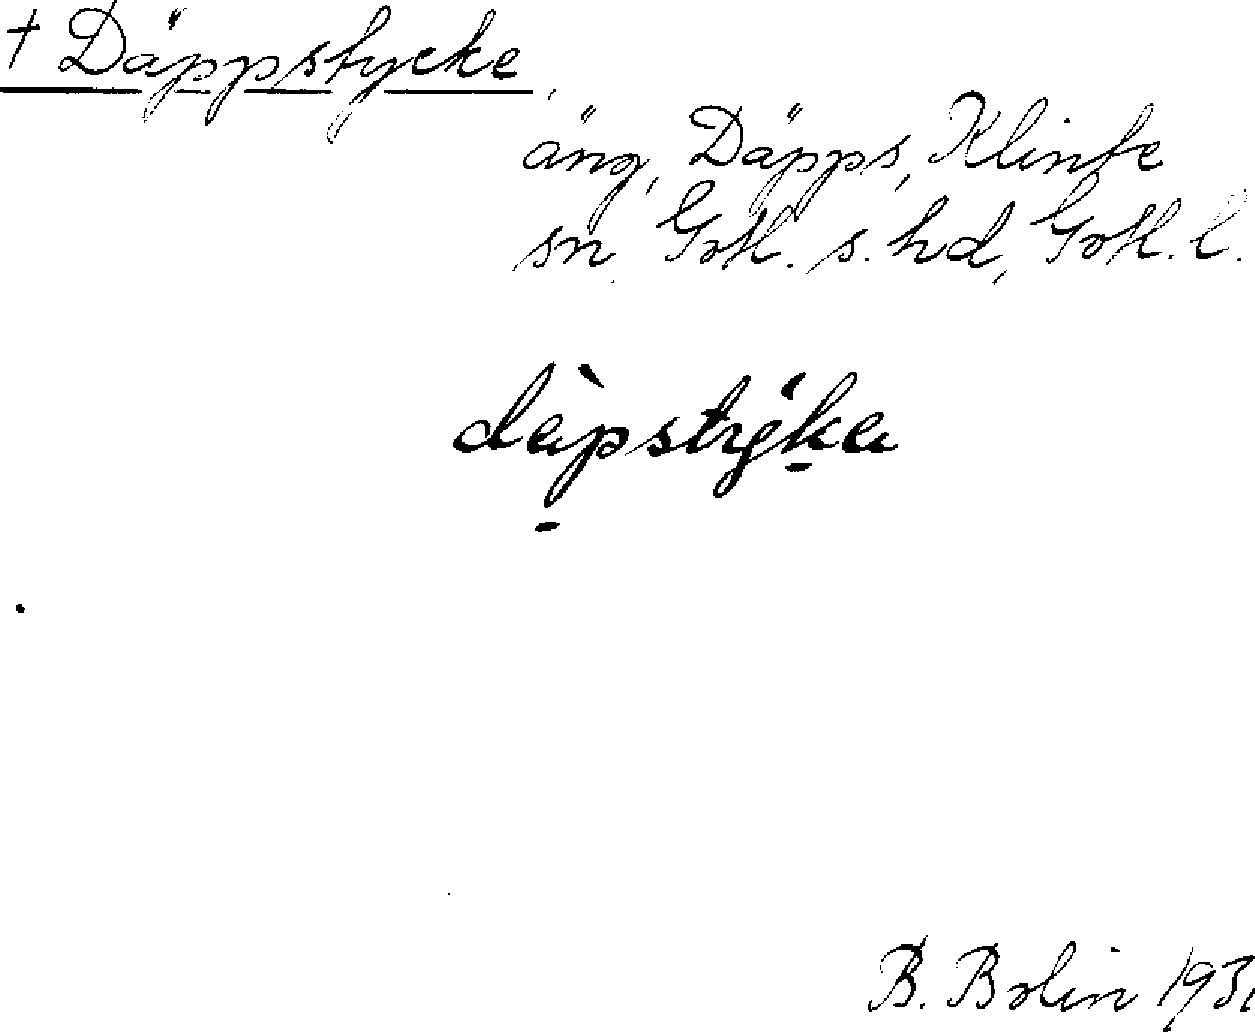 † Däppstycke,
äng, Däpps, Klinte
sn, Gotl. s. hd, Gotl. l.
dàpstýka
B. Bolin 193